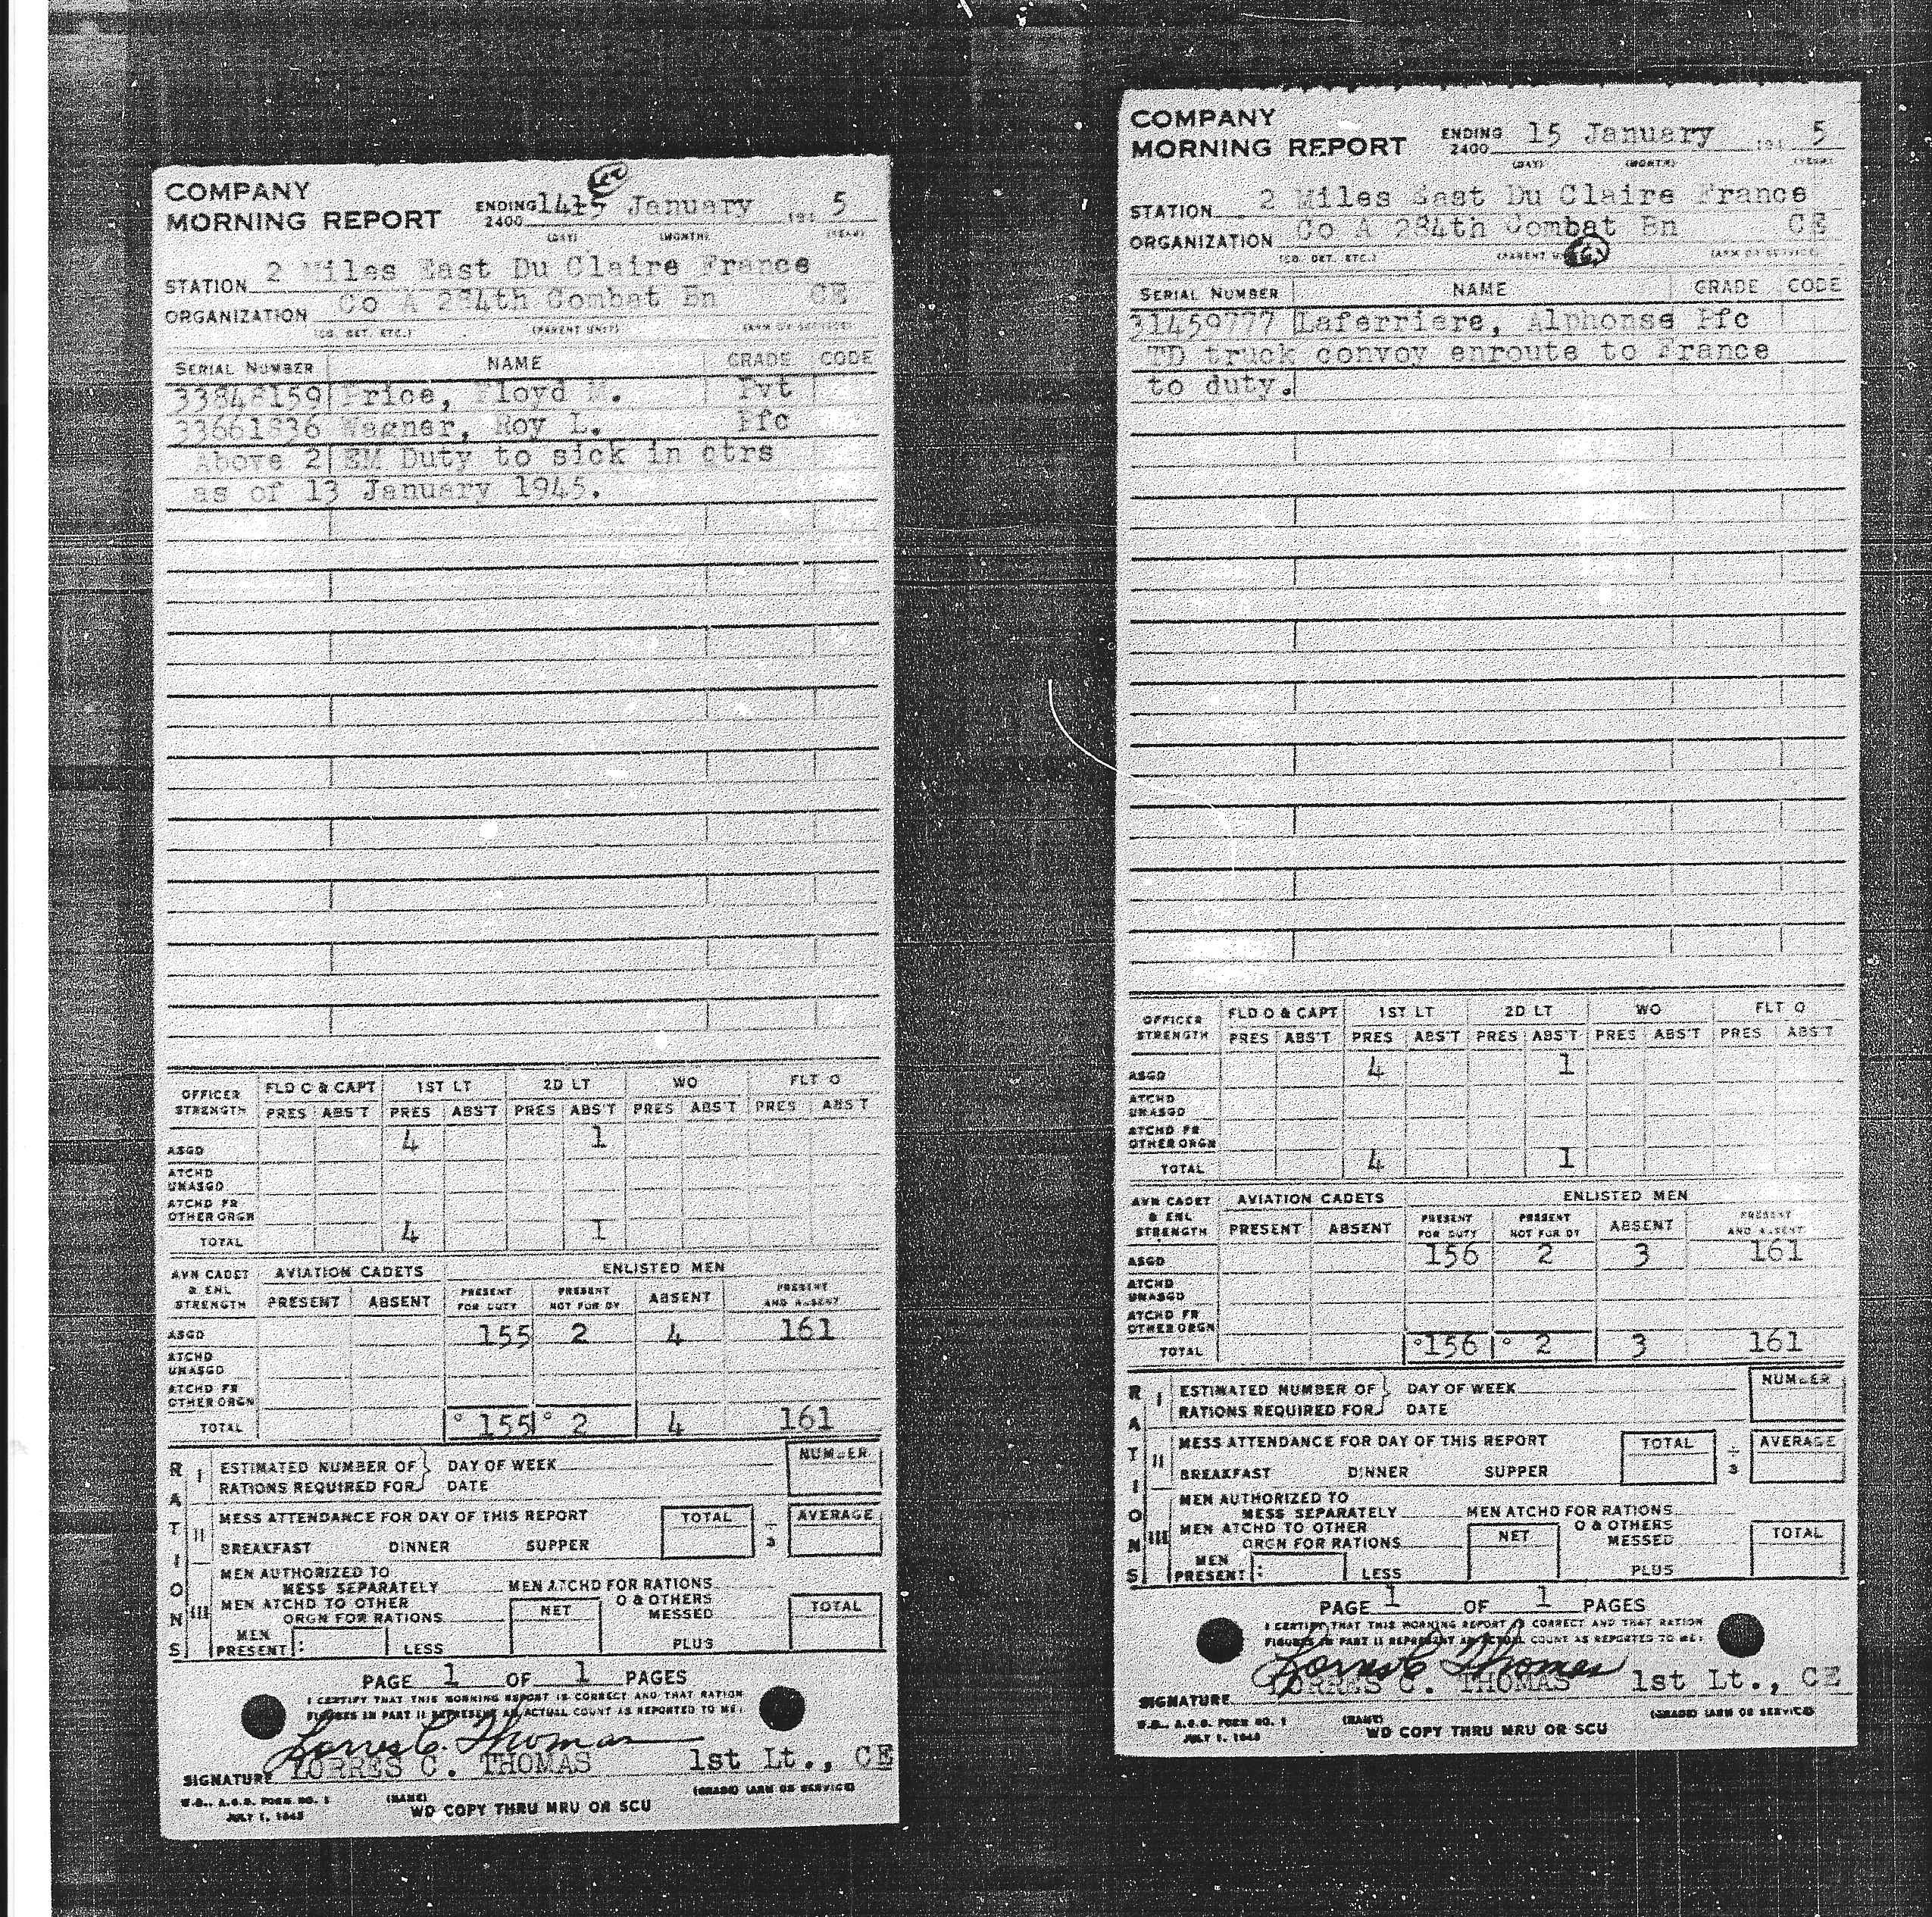 COMPANY
MORNING REPORT ENDING 2400 14 January 194 5
(DAY) (MONTH) (YEAR)
STATION 2 Miles East Du Claire France
ORGANIZATION Co A 284th Combat Bn CE
(CO. DET. ETC.) (PARENT UNIT) (ARM OR SERVICE)
SERIAL NUMBER NAME GRADE CODE
33848159 Price, Floyd M. Pvt
33661836 Wagner, Roy L. Pfc
Above 2 EM Duty to sick in qtrs
as of 13 January 1945.
OFFICER STRENGTH FLD O & CAPT 1ST LT 2D LT WO FLT O
PRES ABS'T PRES ABS'T PRES ABS'T PRES ABS'T PRES ABS'T
ASGD 4 1
ATCHD UNASGD
ATCHD FR OTHER ORGN
TOTAL 4 1
AVN CADET & ENL STRENGTH AVIATION CADETS ENLISTED MEN
PRESENT ABSENT PRESENT FOR DUTY PRESENT NOT FOR DY ABSENT PRESENT AND ABSENT
ASGD 155 2 4 161
ATCHD UNASGD
ATCHD FR OTHER ORGN
TOTAL 155 2 4 161
RATIONS
I ESTIMATED NUMBER OF DAY OF WEEK NUMBER
RATIONS REQUIRED FOR DATE
II MESS ATTENDANCE FOR DAY OF THIS REPORT TOTAL ÷ 3 AVERAGE
BREAKFAST DINNER SUPPER
III MEN AUTHORIZED TO
MESS SEPARATELY MEN ATCHD FOR RATIONS
MEN ATCHD TO OTHER O & OTHERS
ORGN FOR RATIONS NET MESSED TOTAL
MEN PRESENT : LESS PLUS
PAGE 1 OF 1 PAGES
I CERTIFY THAT THIS MORNING REPORT IS CORRECT AND THAT RATION
FIGURES IN PART II REPRESENT AN ACTUAL COUNT AS REPORTED TO ME:
Lorres C. Thomas
SIGNATURE LORRES C. THOMAS 1st Lt., CE
W.D., A.G.O. FORM NO. 1 (NAME) (GRADE) (ARM OR SERVICE)
JULY 1, 1943 WD COPY THRU MRU OR SCU
COMPANY
MORNING REPORT ENDING 2400 15 January 194 5
(DAY) (MONTH) (YEAR)
STATION 2 Miles East Du Claire France
ORGANIZATION Co A 284th Combat Bn CE
(CO. DET. ETC.) (PARENT UNIT) (ARM OR SERVICE)
SERIAL NUMBER NAME GRADE CODE
31459777 Laferriere, Alphonse Pfc
TD truck convoy enroute to France
to duty.
OFFICER STRENGTH FLD O & CAPT 1ST LT 2D LT WO FLT O
PRES ABS'T PRES ABS'T PRES ABS'T PRES ABS'T PRES ABS'T
ASGD 4 1
ATCHD UNASGD
ATCHD FR OTHER ORGN
TOTAL 4 1
AVN CADET & ENL STRENGTH AVIATION CADETS ENLISTED MEN
PRESENT ABSENT PRESENT FOR DUTY PRESENT NOT FOR DY ABSENT PRESENT AND ABSENT
ASGD 156 2 3 161
ATCHD UNASGD
ATCHD FR OTHER ORGN
TOTAL 156 2 3 161
RATIONS
I ESTIMATED NUMBER OF DAY OF WEEK NUMBER
RATIONS REQUIRED FOR DATE
II MESS ATTENDANCE FOR DAY OF THIS REPORT TOTAL ÷ 3 AVERAGE
BREAKFAST DINNER SUPPER
III MEN AUTHORIZED TO
MESS SEPARATELY MEN ATCHD FOR RATIONS
MEN ATCHD TO OTHER O & OTHERS
ORGN FOR RATIONS NET MESSED TOTAL
MEN PRESENT : LESS PLUS
PAGE 1 OF 1 PAGES
I CERTIFY THAT THIS MORNING REPORT IS CORRECT AND THAT RATION
FIGURES IN PART II REPRESENT AN ACTUAL COUNT AS REPORTED TO ME:
Lorres C Thomas
SIGNATURE LORRES C. THOMAS 1st Lt., CE
W.D., A.G.O. FORM NO. 1 (NAME) (GRADE) (ARM OR SERVICE)
JULY 1, 1943 WD COPY THRU MRU OR SCU